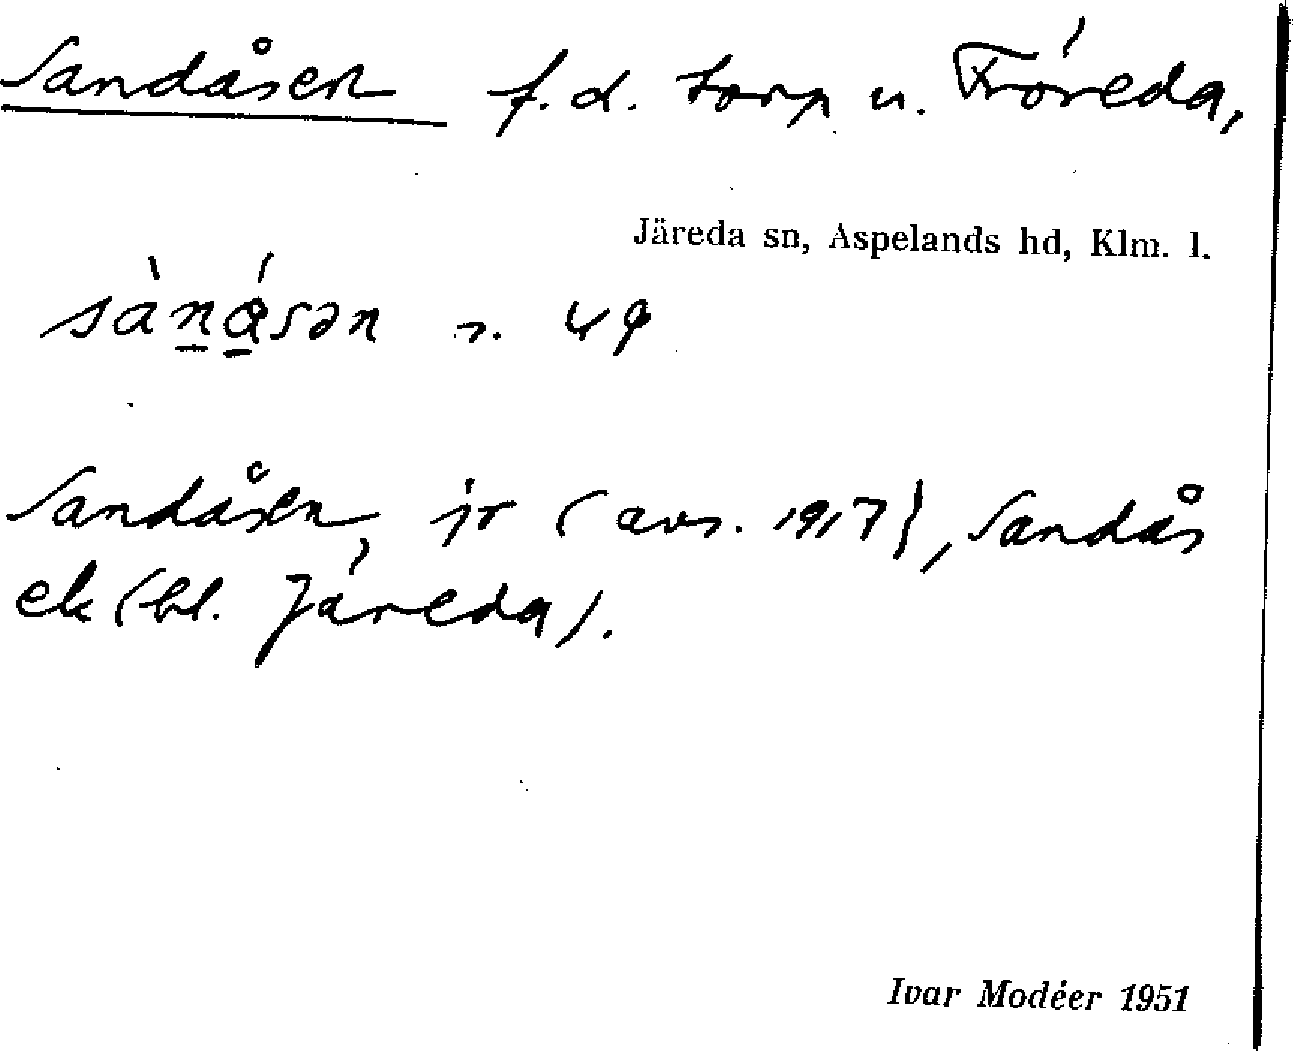 Sandåsen f.d. torp u. Fröreda,
Järeda sn, Aspelands hd, Klm. l.
sànásən r. 49
Sandåsen, jr (avs. 1917), Sandås
ek (bl. Järeda).
Ivar Modéer 1951